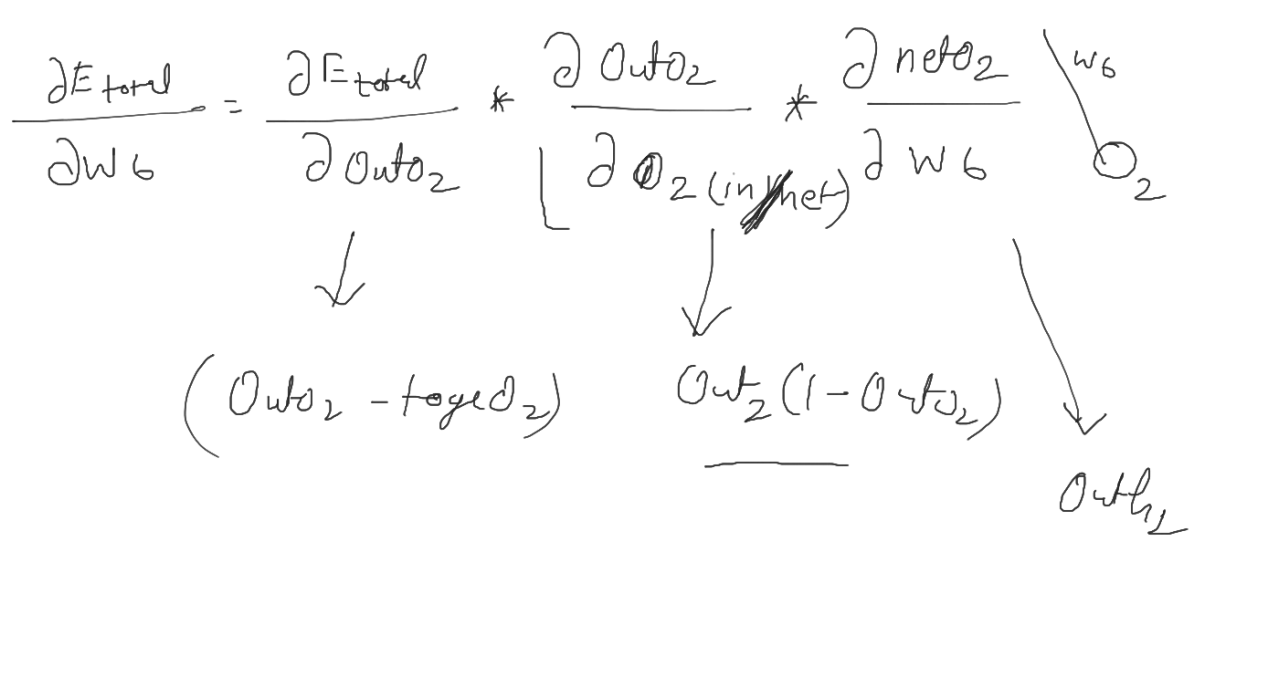 ∂E total / ∂w6 = ∂E total / ∂Outo2 * ∂Outo2 / ∂O2 (in net) * ∂neto2 / ∂w6
w6
O2
(Outo2 - togeO2) Out2 (1 - Outo2)
Outh2